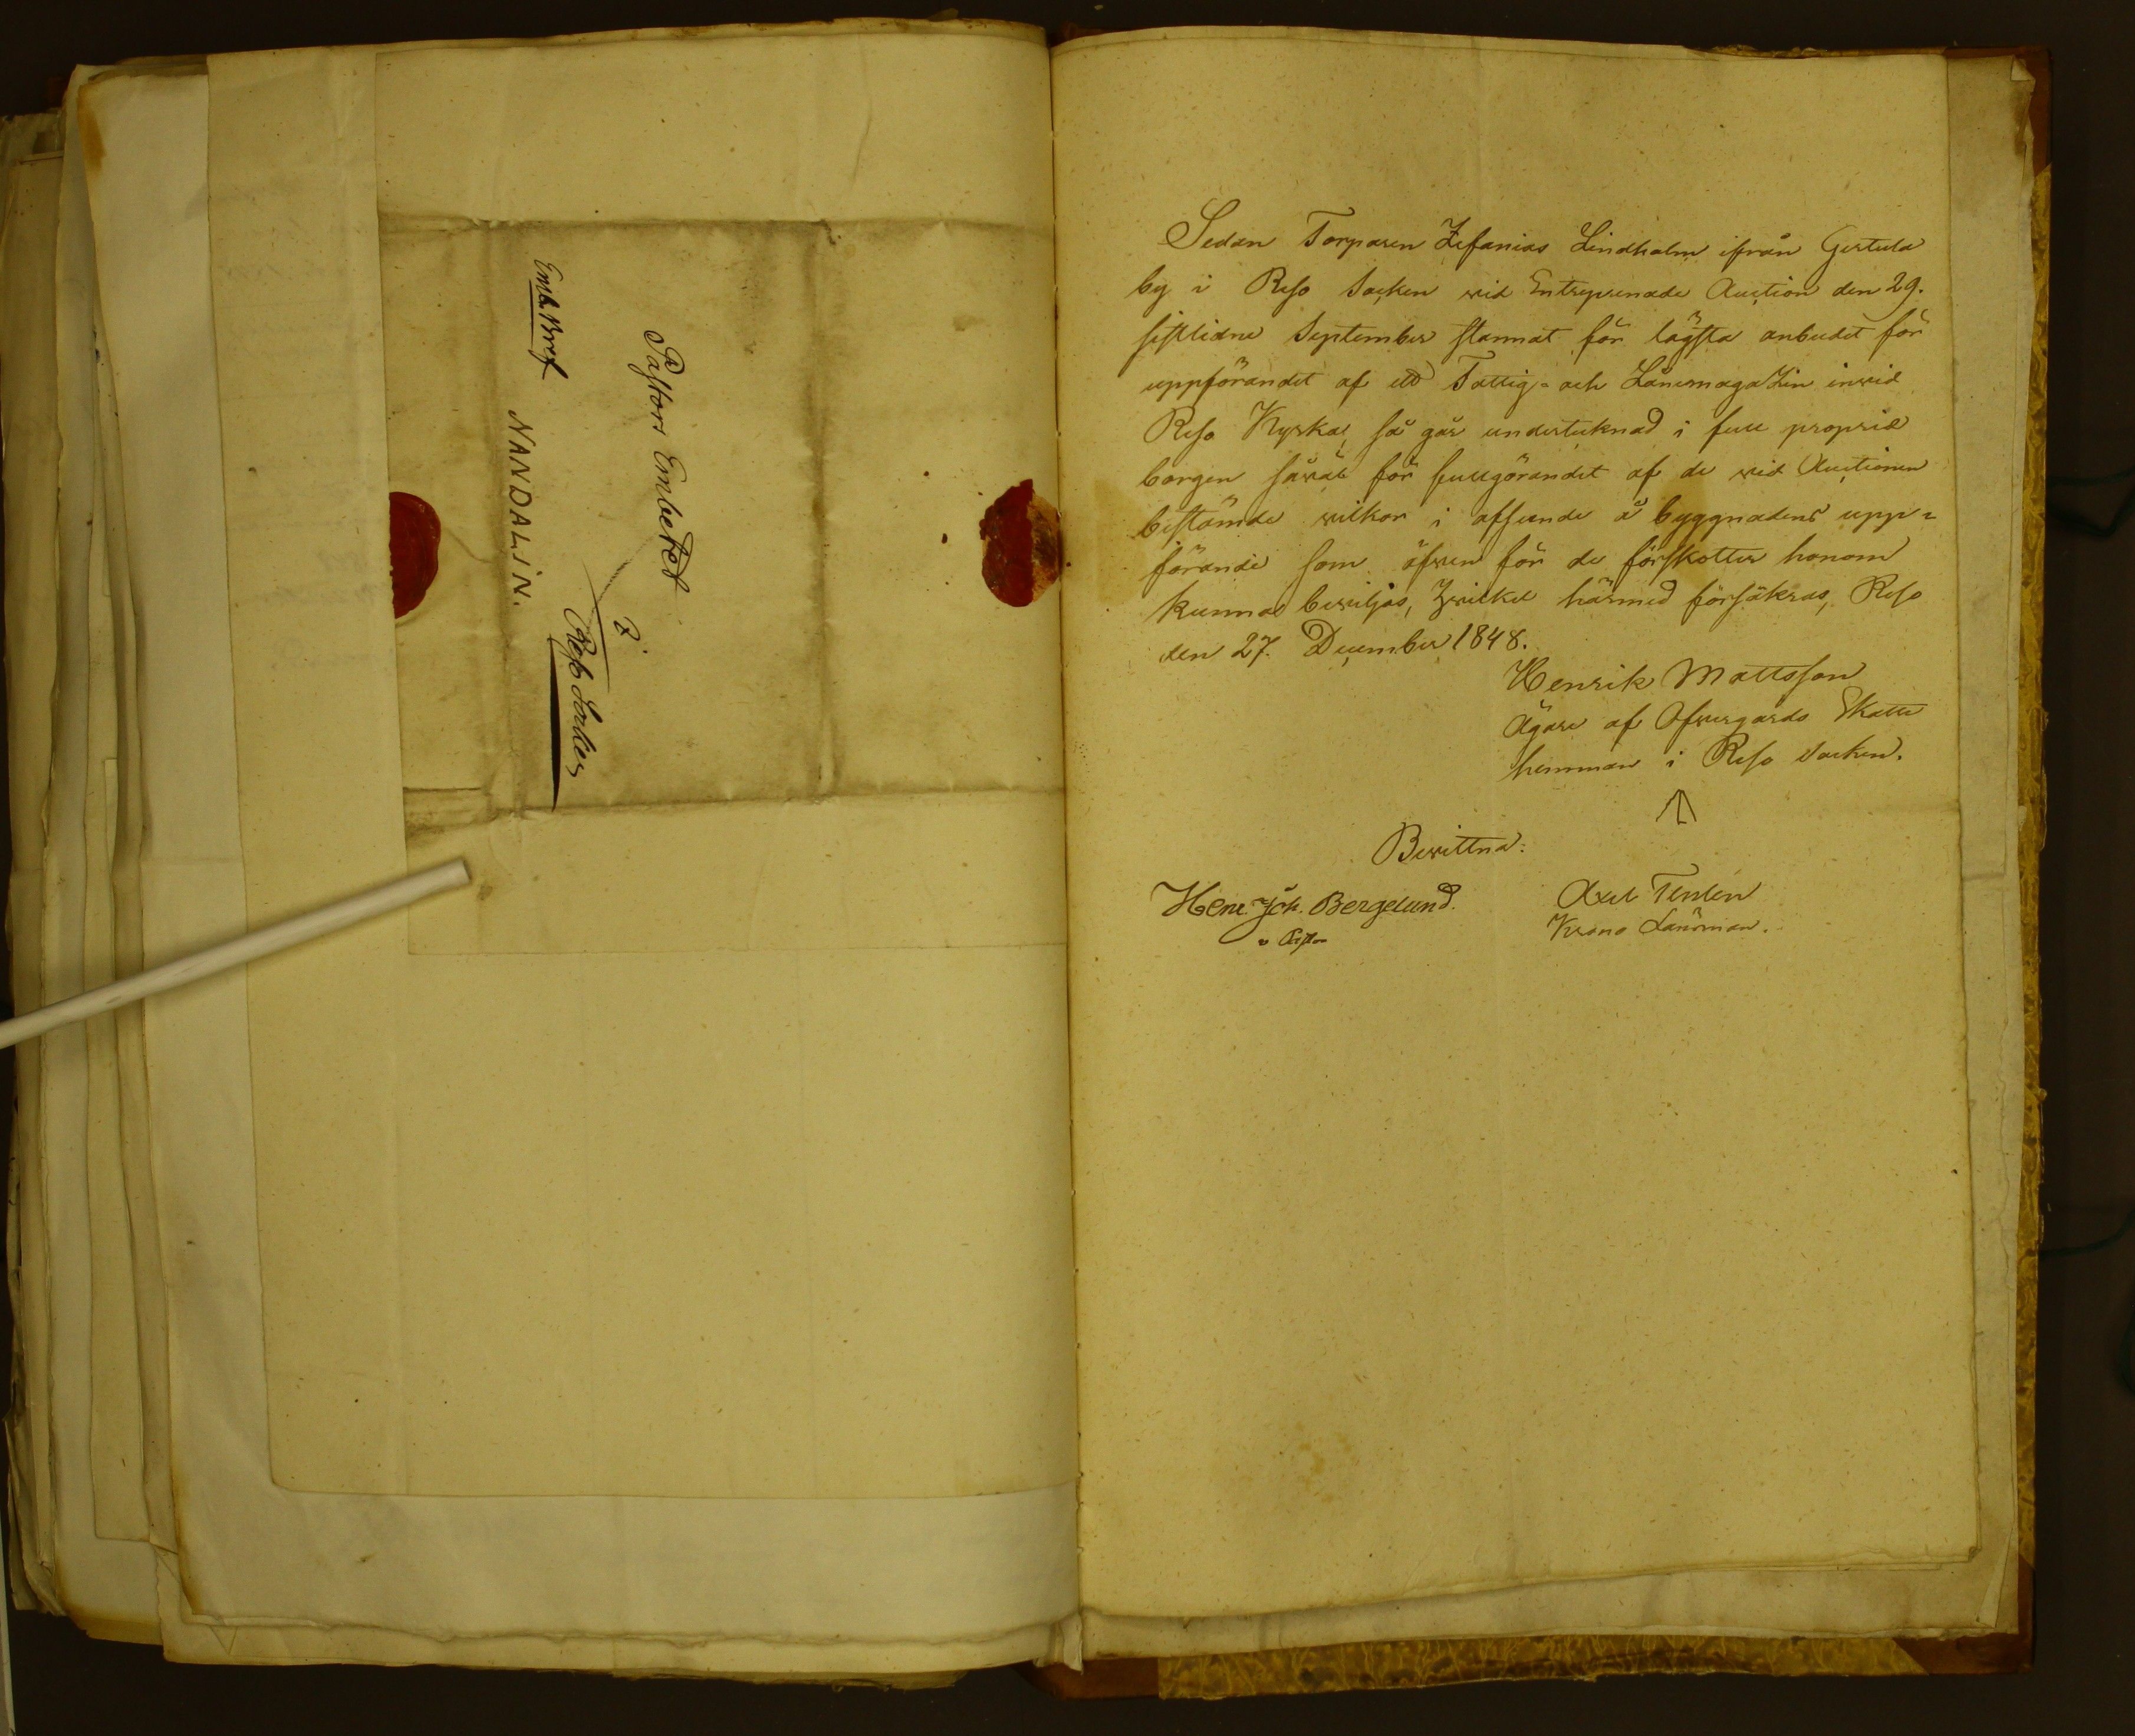 Emb. Bref
NANDALIN.
Pastors Embetet
i
Reso Socken
Sedan Torparen Zefanias Lindholm ifrån Gertula
by i Reso Socken vid Entreprenade Auction den 29.
sistlidne September stannat för lägsta anbudet för
uppförandet af ett Fattig- och Lånemagazin invid
Reso Kyrka, så går undertecknad i full proprie
borgen såväl för fullgörandet af de vid Auctionen
bestämde vilkor i afseende å byggnadens upp-
förande som äfven för de förskotter honom
kunna beviljas, hvilket härmed försäkras, Reso
den 27. December 1848.
Henrik Mattsson
Ägare af Ofvergårds Skatte
hemman i Reso Socken.
Bevittna:
Henr. Joh. Bergelund.
v Pastor
Axel Tenlén
Krono Länsman.